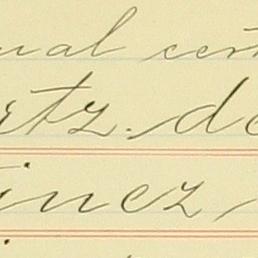 ual cert
rtz. de
inez